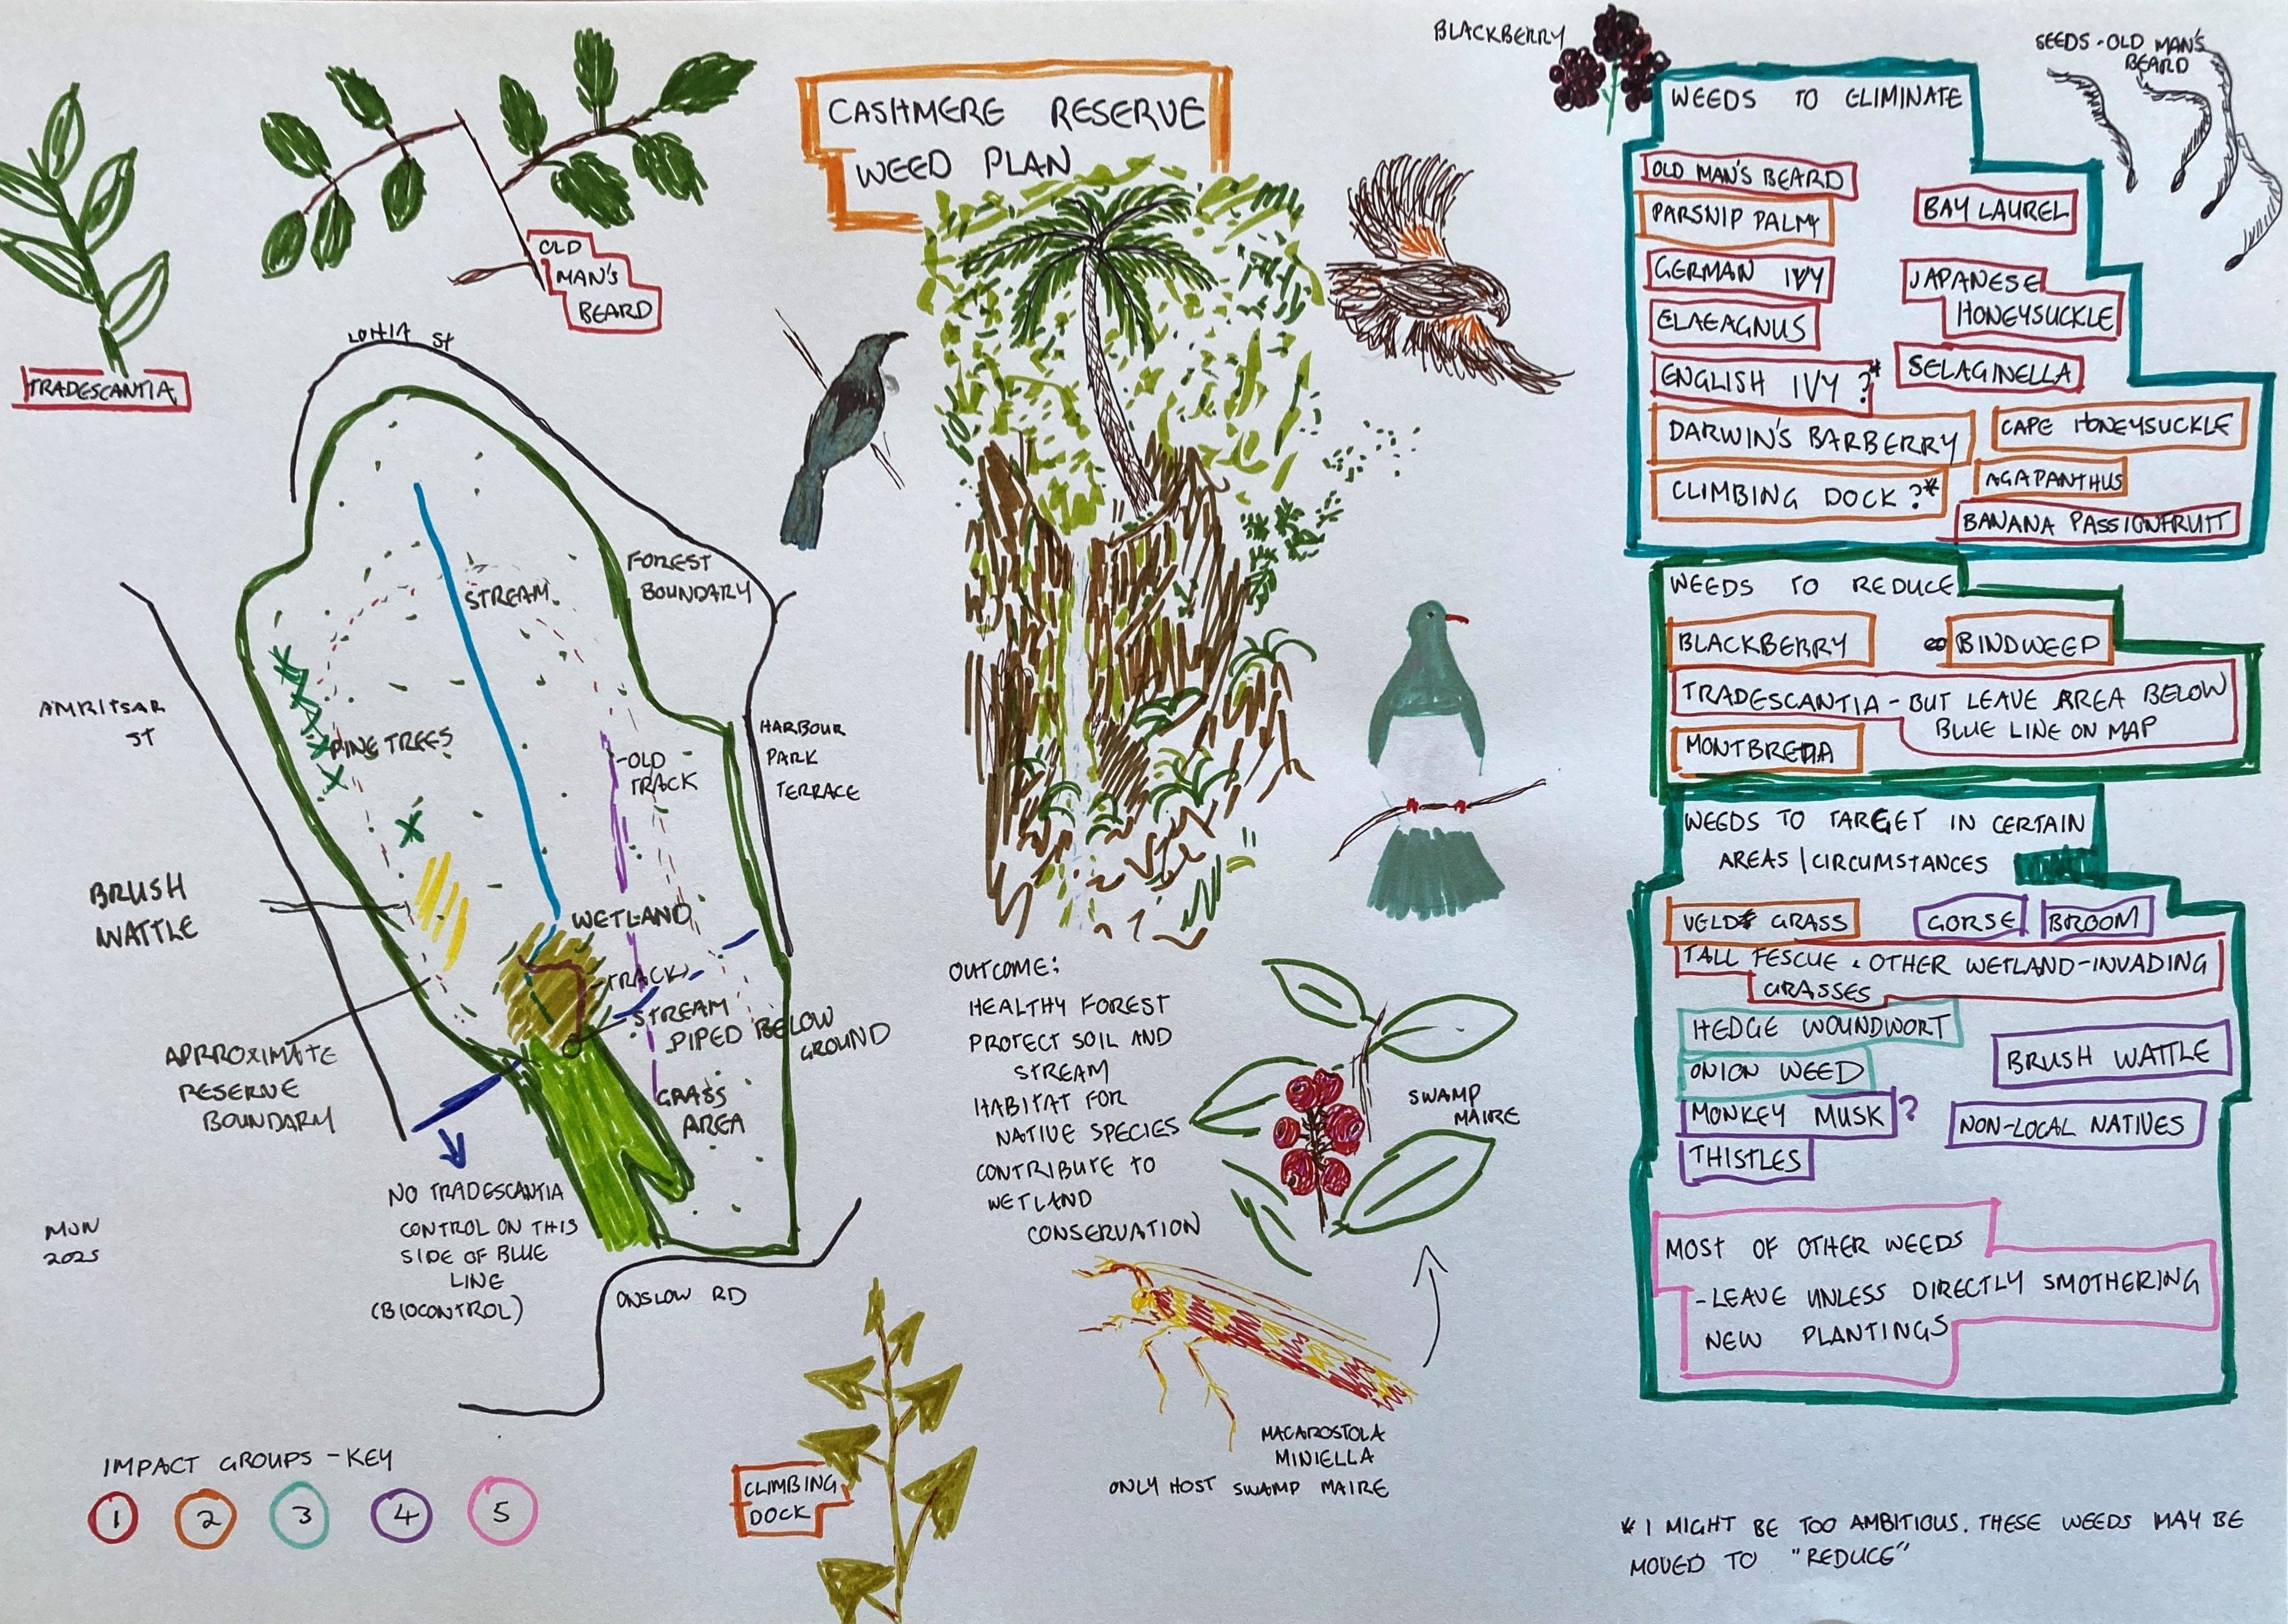 CASHMERE RESERVE
WEED PLAN
BLACKBERRY
SEEDS - OLD MAN'S
BEARD
TRADESCANTIA
OLD
MAN'S
BEARD
ST
STREAM
FOREST
BOUNDARY
AMRITSAR
ST
PINE TREES
OLD
TRACK
HARBOUR
PARK
TERRACE
BRUSH
WATTLE
WETLAND
TRACK
STREAM
PIPED BELOW
GROUND
APPROXIMATE
RESERVE
BOUNDARY
GRASS
AREA
NO TRADESCANTIA
CONTROL ON THIS
SIDE OF BLUE
LINE
(BIOCONTROL)
MUN
2025
ONSLOW RD
IMPACT GROUPS - KEY
1 2 3 4 5
CLIMBING
DOCK
OUTCOME:
HEALTHY FOREST
PROTECT SOIL AND
STREAM
HABITAT FOR
NATIVE SPECIES
CONTRIBUTE TO
WETLAND
CONSERVATION
SWAMP
MAIRE
MACAROSTOLA
MINIELLA
ONLY HOST SWAMP MAIRE
WEEDS TO ELIMINATE
OLD MAN'S BEARD
PARSNIP PALM
BAY LAUREL
GERMAN IVY
JAPANESE
HONEYSUCKLE
ELAEAGNUS
ENGLISH IVY ?*
SELAGINELLA
DARWIN'S BARBERRY
CAPE HONEYSUCKLE
CLIMBING DOCK ?*
AGAPANTHUS
BANANA PASSIONFRUIT
WEEDS TO REDUCE
BLACKBERRY
BINDWEED
TRADESCANTIA - BUT LEAVE AREA BELOW
BLUE LINE ON MAP
MONTBRETIA
WEEDS TO TARGET IN CERTAIN
AREAS / CIRCUMSTANCES
VELDT GRASS
GORSE
BROOM
TALL FESCUE & OTHER WETLAND-INVADING
GRASSES
HEDGE WOUNDWORT
ONION WEED
BRUSH WATTLE
MONKEY MUSK ?
NON-LOCAL NATIVES
THISTLES
MOST OF OTHER WEEDS
- LEAVE UNLESS DIRECTLY SMOTHERING
NEW PLANTINGS
* I MIGHT BE TOO AMBITIOUS. THESE WEEDS MAY BE
MOVED TO "REDUCE"